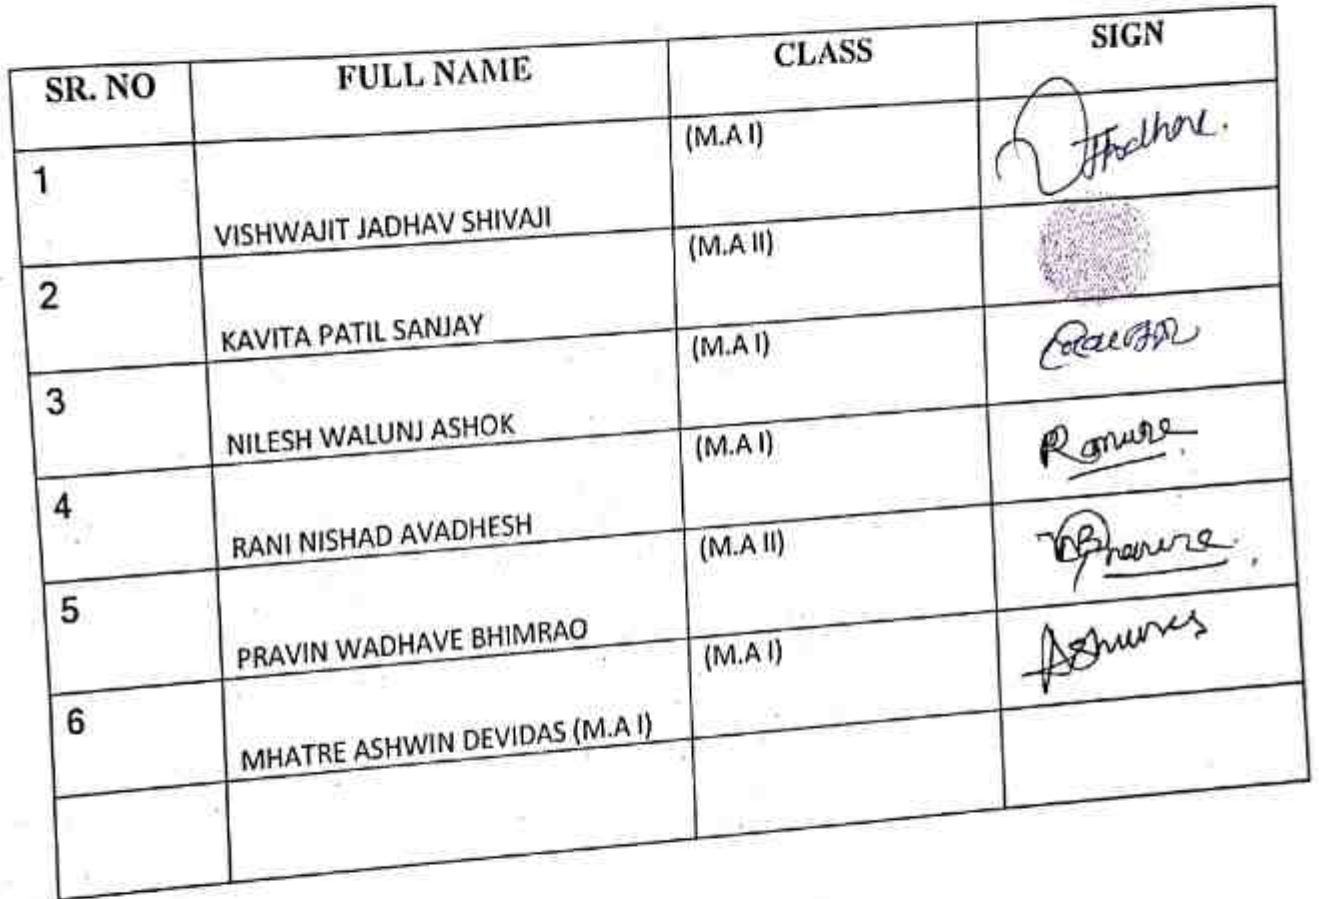 SR. NO FULL NAME CLASS SIGN
1 VISHWAJIT JADHAV SHIVAJI (M.A I)
2 KAVITA PATIL SANJAY (M.A II)
3 NILESH WALUNJ ASHOK (M.A I)
4 RANI NISHAD AVADHESH (M.A I)
5 PRAVIN WADHAVE BHIMRAO (M.A II)
6 MHATRE ASHWIN DEVIDAS (M.A I) (M.A I)